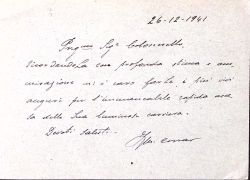 26-12-1941
Preg.mo Sig. Colonnello
Ricordandola con profonda stima e am-
mirazione mi è caro farLe i più vivi
auguri per l'immancabile rapida asce
sa della Sua luminosa carriera.
Devoti saluti.